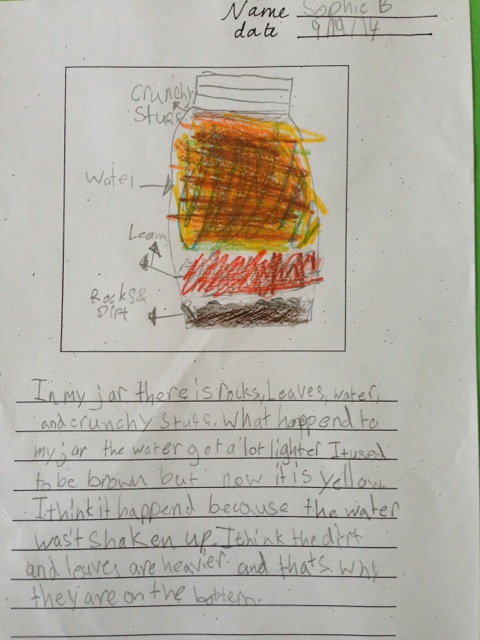 Name Sophie B
date 9/19/14
Crunchy
Stuff
Water
Leaves
Rocks&
Dirt
In my jar there is rocks, Leaves, water,
and crunchy stuff. What happend to
my jar the water got a lot lighter It used
to be brown but now it is yellow
I think it happend because the water
was't shaken up. I think the dirt
and leaves are heavier. and thats. Why
they are on the bottem.